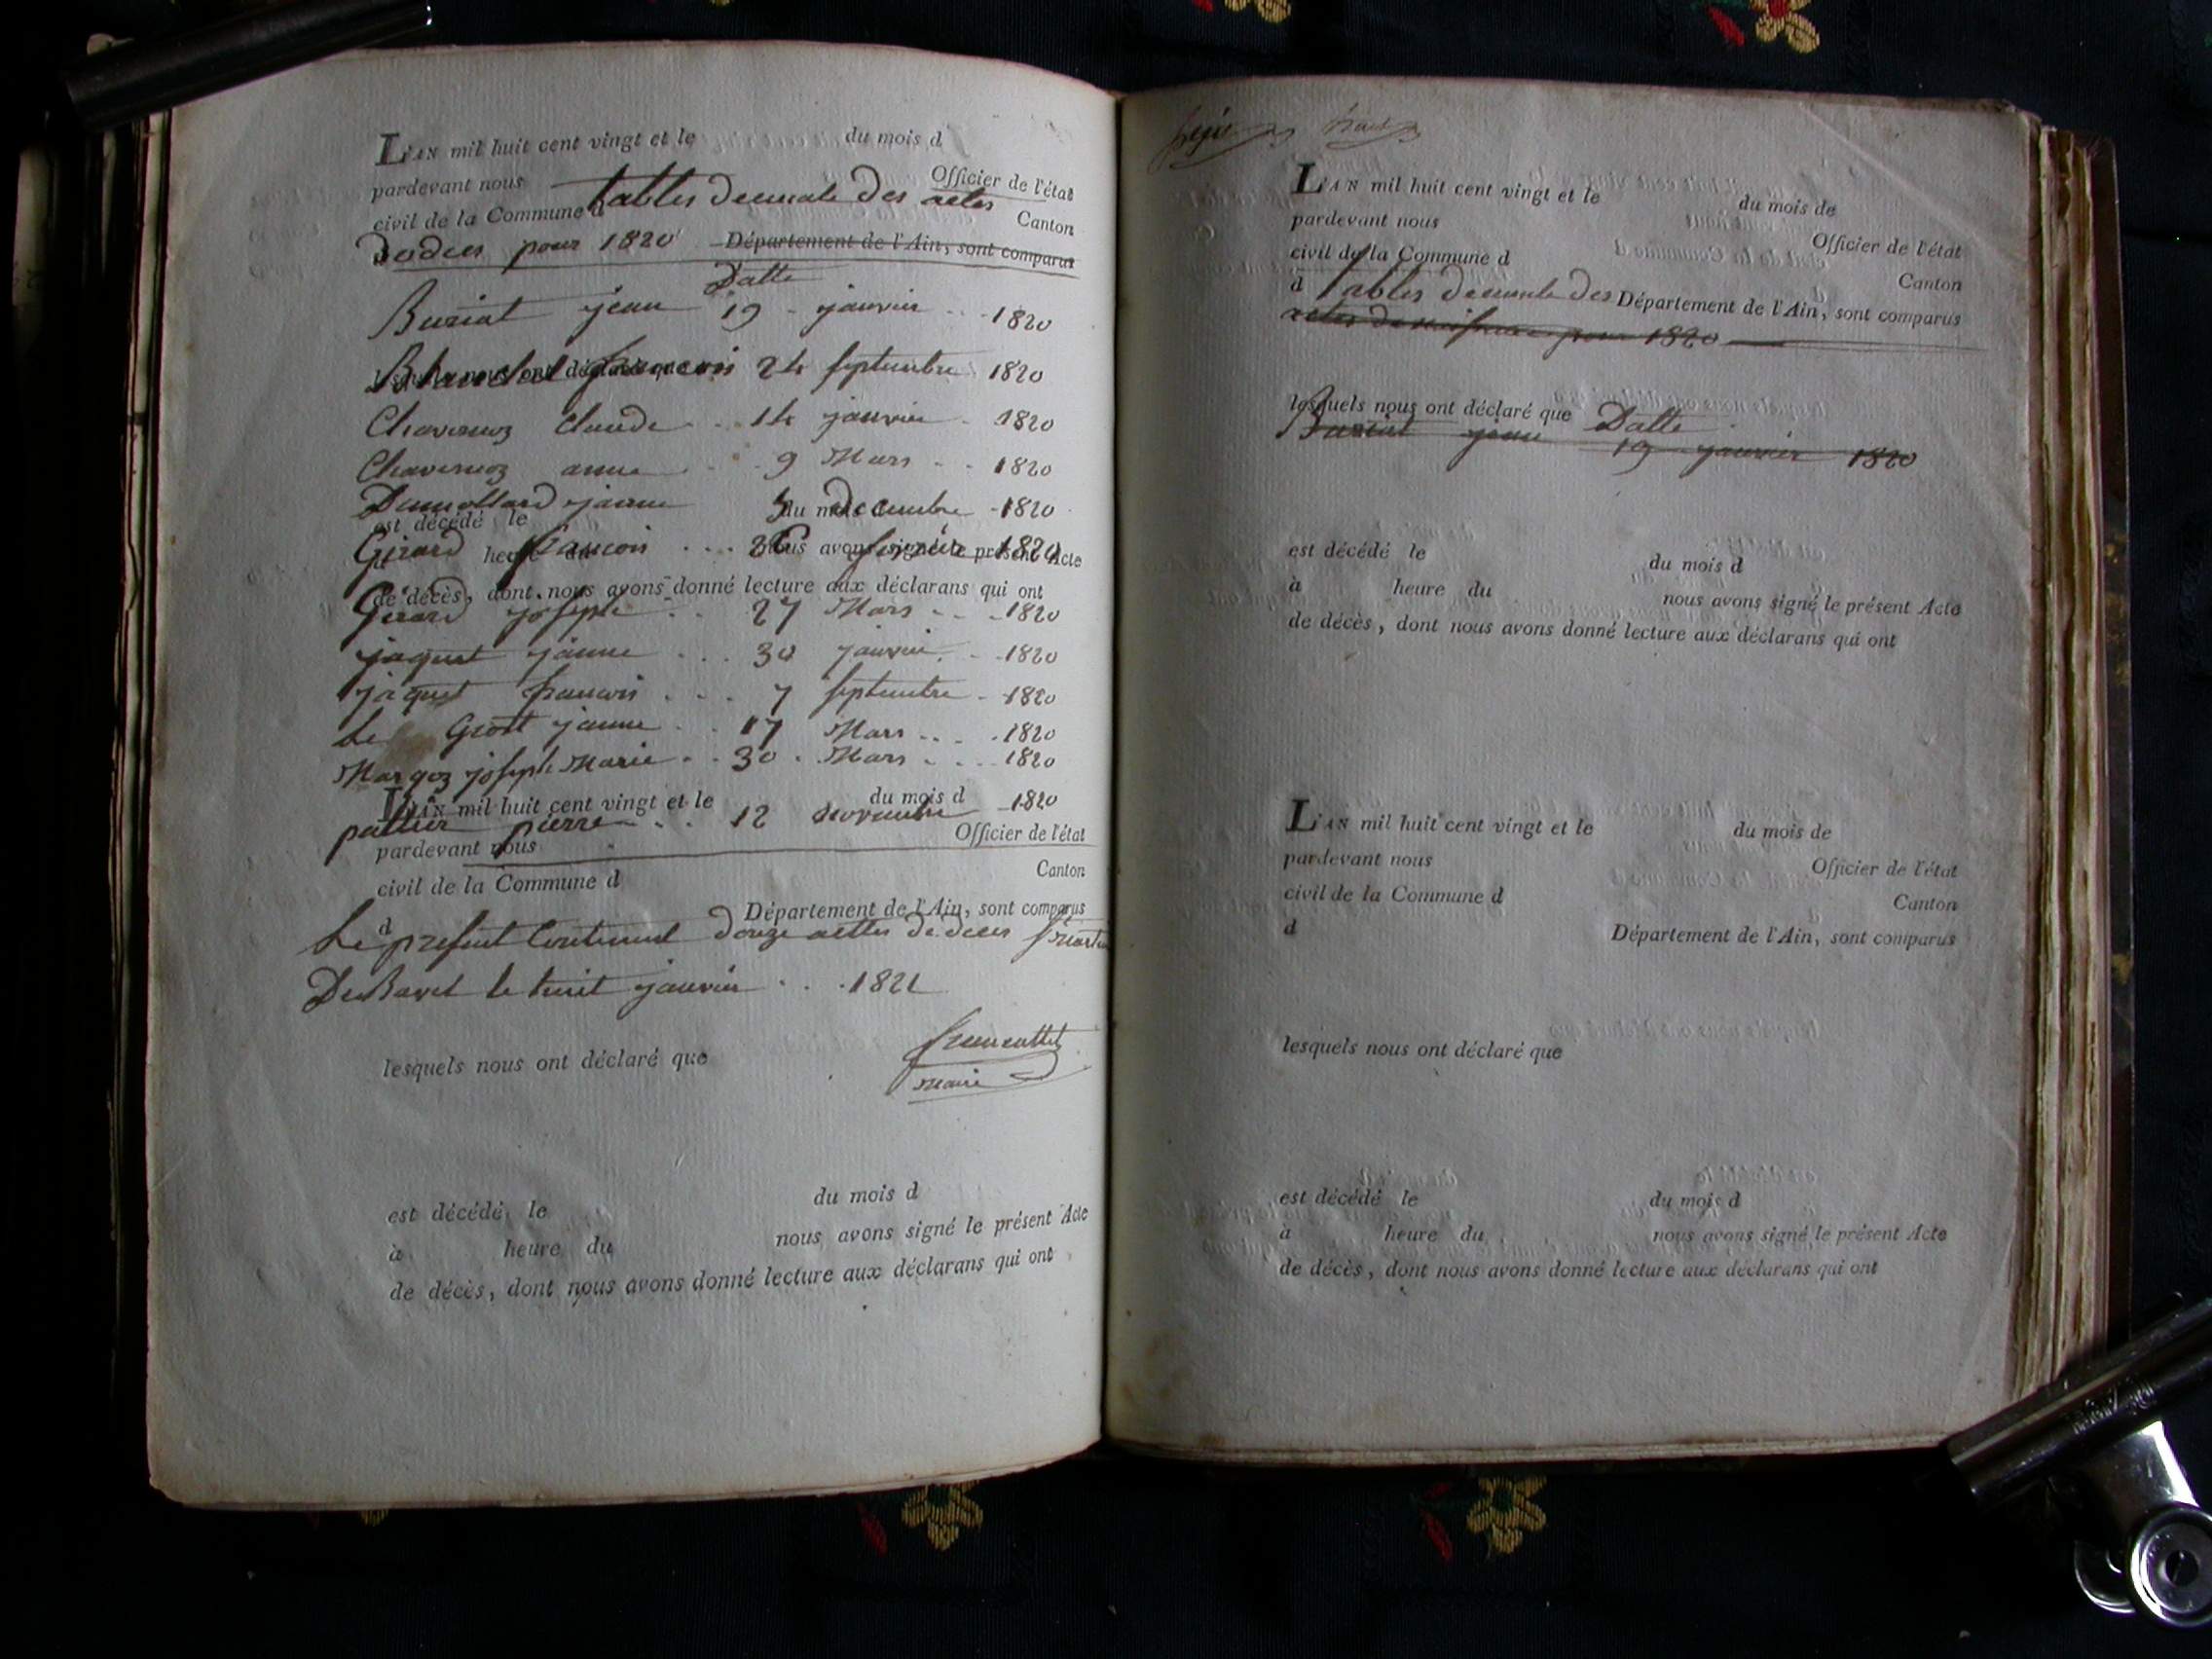 L'AN mil huit cent vingt et le du mois d
pardevant nous Officier de l'état
civil de la Commune d tables decennale des actes Canton
de deces pour 1820 Département de l'Ain, sont comparus
Datte
Buriat jean 19 janvier 1820
lesquels nous ont déclaré que
Blanchet francois 24 septembre 1820
Chavernoz claude 14 janvier 1820
Chavernoz anne 9 Mars 1820
Dumollard jeanne 5 decembre 1820
est décédé le du mois d
Girard francois 26 1820
à heure du nous avons signé le présent Acte
de décès, dont nous avons donné lecture aux déclarans qui ont
Girard joseph 27 Mars 1820
jaquet jeanne 30 janvier 1820
jaquet francois 7 septembre 1820
Le Grott jeanne 17 Mars 1820
Margoz joseph Marie 30 Mars 1820
L'AN mil huit cent vingt et le du mois d
pierre 12 novembre 1820
pardevant nous Officier de l'état
civil de la Commune d Canton
d Département de l'Ain, sont comparus
Le present Contenant douze acttes de deces
le huit janvier 1821
lesquels nous ont déclaré que
Maire
est décédé le du mois d
à heure du nous avons signé le présent Acte
de décès, dont nous avons donné lecture aux déclarans qui ont
L'AN mil huit cent vingt et le du mois de
pardevant nous Officier de l'état
civil de la Commune d Canton
d tables decennale des Département de l'Ain, sont comparus
actes de naissance pour 1820
lesquels nous ont déclaré que Datte
Buriat jean 19 janvier 1820
est décédé le du mois d
à heure du nous avons signé le présent Acte
de décès, dont nous avons donné lecture aux déclarans qui ont
L'AN mil huit cent vingt et le du mois de
pardevant nous Officier de l'état
civil de la Commune d Canton
d Département de l'Ain, sont comparus
lesquels nous ont déclaré que
est décédé le du mois d
à heure du nous avons signé le présent Acte
de décès, dont nous avons donné lecture aux déclarans qui ont